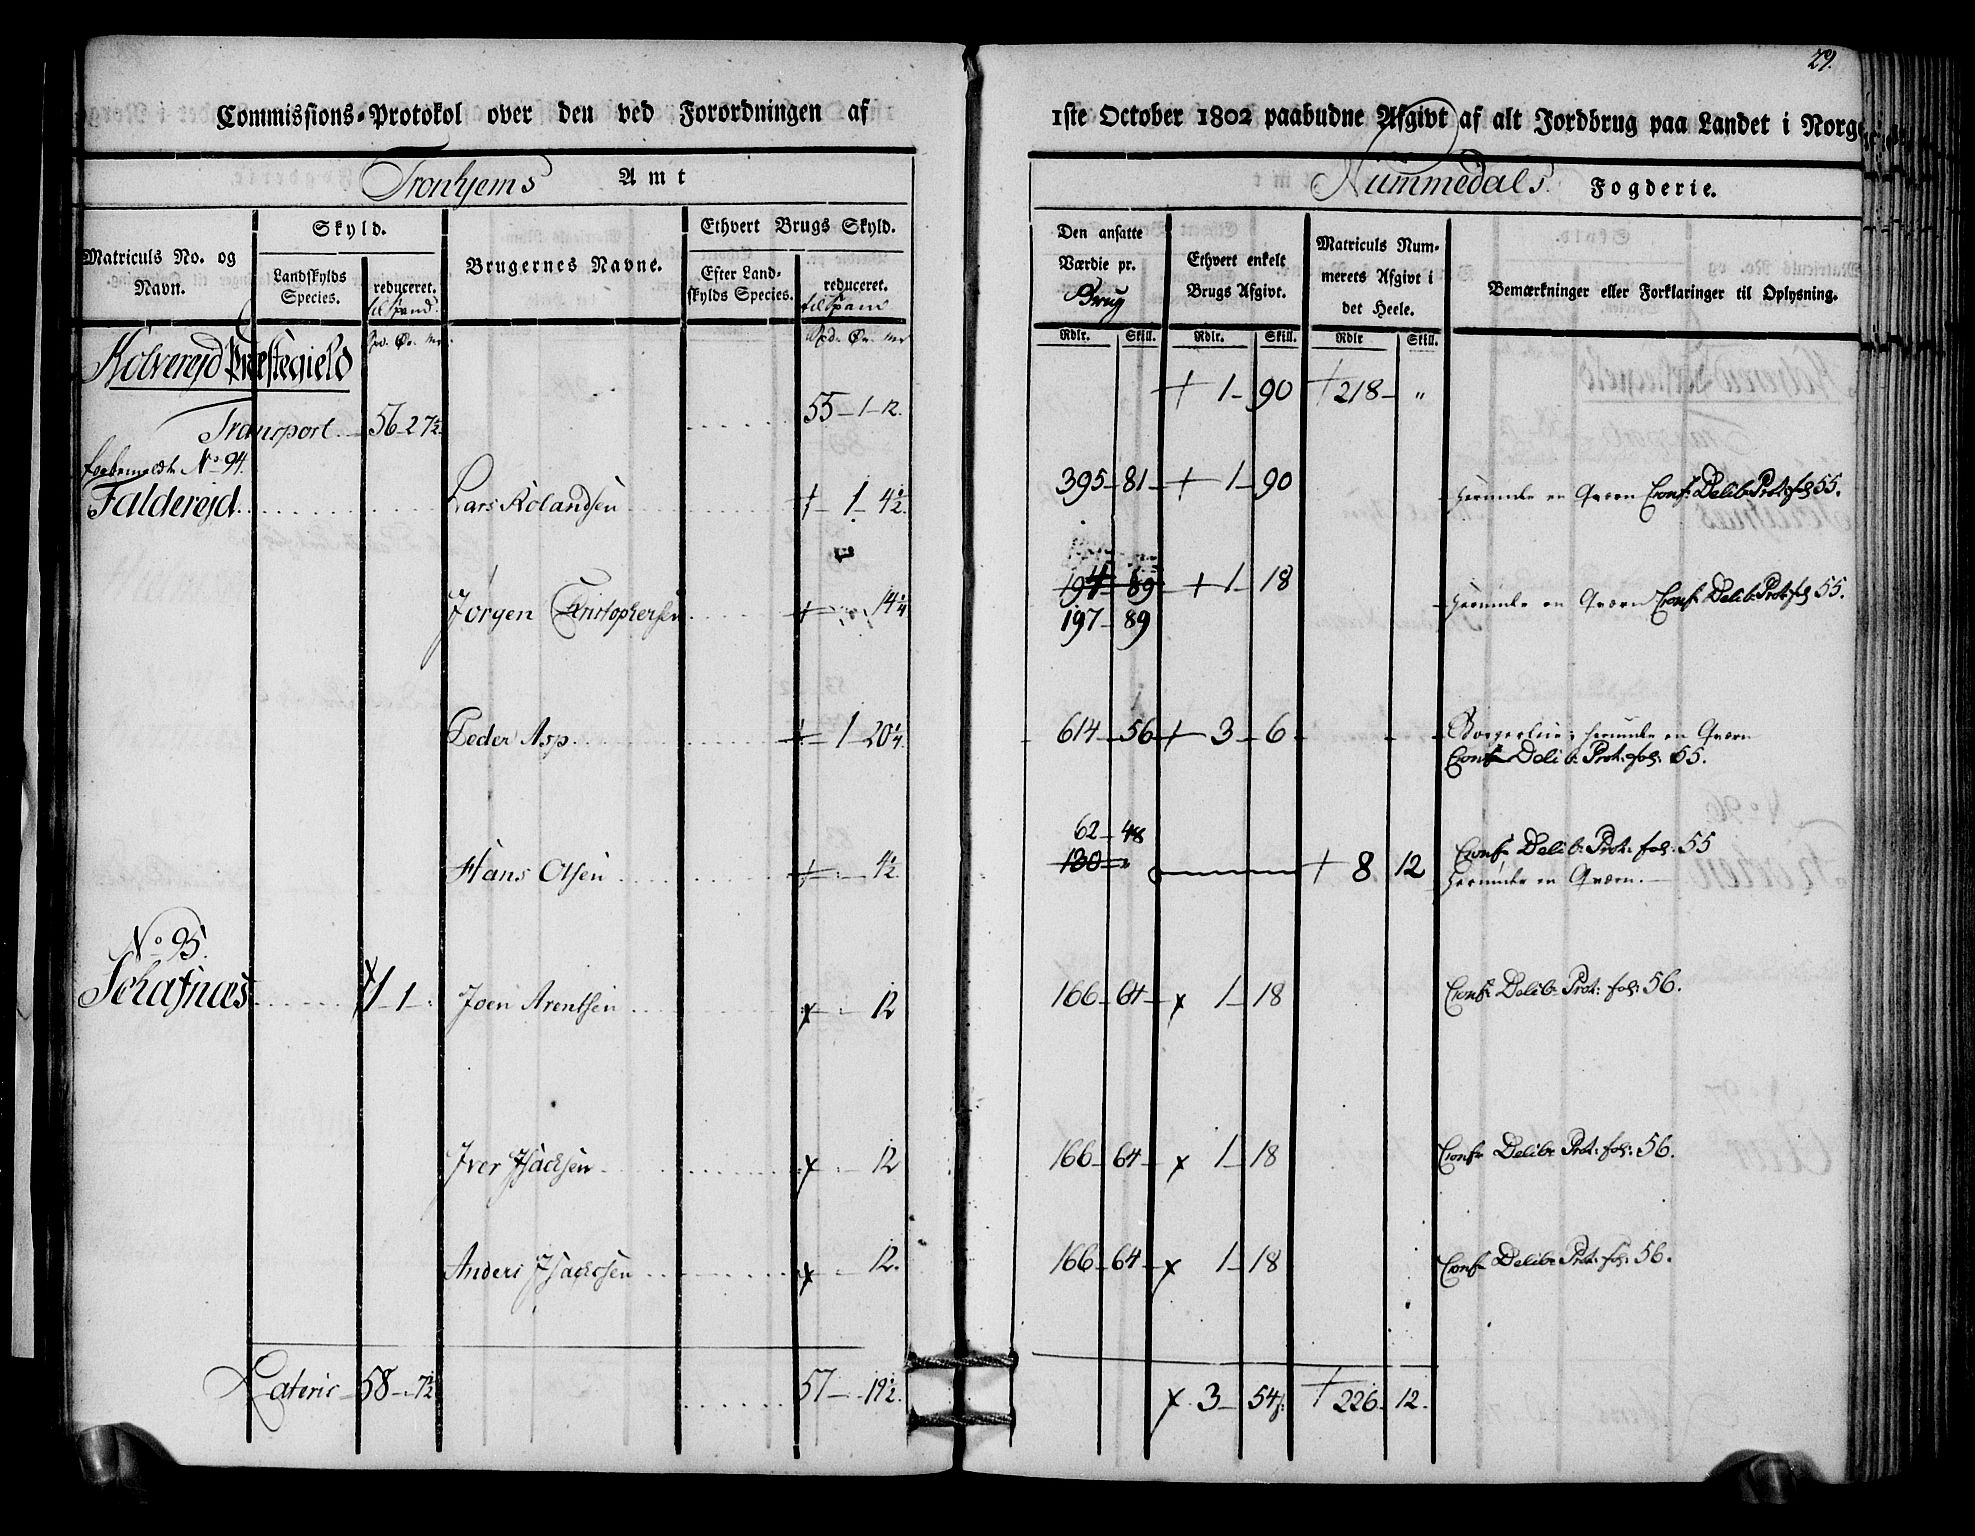 29.
Commissions-Protokol over den ved Forordningen af 1ste October 1802 paabudne Afgivt af alt Jordbrug paa Landet i Norge
Tronhjems Amt Nummedals Fogderie.
Matriculs No. og Navn.
Skyld.
Landskylds Species.
reduceret. til Spand.
Brugernes Navne.
Ethvert Brugs Skyld.
Efter Landskylds Species.
reduceret. til Spand
Den ansatte Værdie pr. Brug
Ethvert enkelt Brugs Afgivt.
Matriculs Nummerets Afgivt i det Heele.
Bemærkninger eller Forklaringer til Oplysning.
Rdlr. Skill. Rdlr. Skill. Rdlr Skill.
Kolverejd Præstegield
Transport 56 - 2 7½ 55 - 1 - 12. + 1 - 90 + 218 - "
No 94.
Falderejd. Lars Rolandsen + 1 - 4½ 395 - 81 + 1 - 90 herunder en Qværn Conf: Delib: Prot: fol 55.
Jørgen Christophersen + 14¼ 197 - 89 + 1 - 18 herunder en Qværn Conf: Delib: Prot: fol 55.
197 - 89
Peder Asp + 1 - 20¼ 614 - 56 + 3 - 6 herunder en Qværn
Conf: Delib: Prot: fol: 55.
62 - 48 Conf: Delib: Prot: fol: 55
Hans Olsen + 4½ 130 - " + 8 12 herunder en Qværn.
No 95.
x 1 - 1 - Joen Arentsen x 12 166 - 64 x 1 - 18 Conf: Delib: Prot: fol: 56.
Iver Isachsen x 12 166 - 64 x 1 - 18 Conf: Delib: Prot: fol: 56.
Anders Isachsen x 12. 166 - 64 x 1 - 18 Conf: Delib: Prot: fol: 56.
Lateris 58 - 7½ 57 - 19½ x 3 - 54 + 226 12.